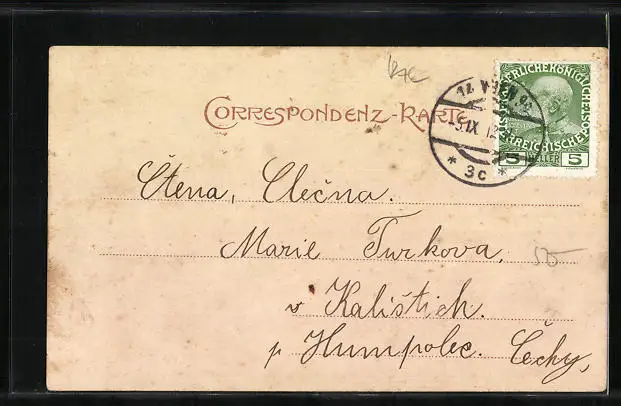 CORRESPONDENZ-KARTE
KAISERLICHE KÖNIGLICHE ÖSTERREICHISCHE
5 HELLER 5
12 WIEN
-5.IX.12
* 3c *
Ctěna, Slečna.
Marie Turkova,
v Kalištich.
p Humpolec. Čechy,